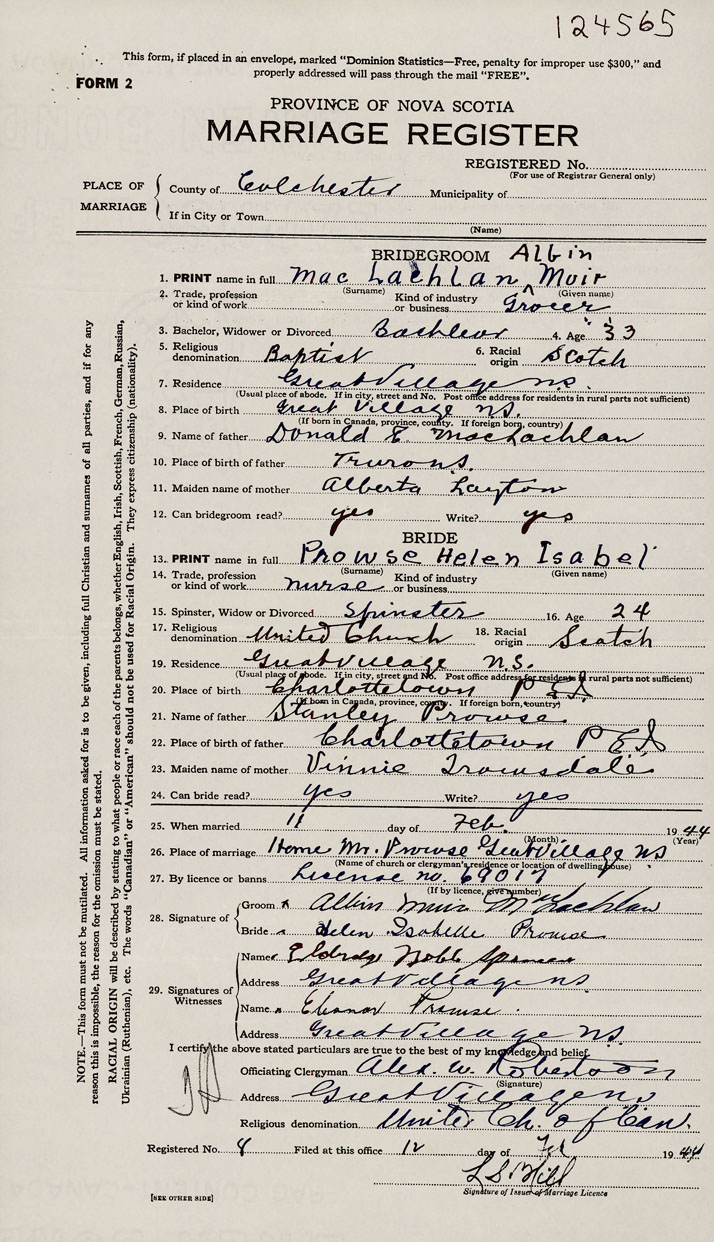 124565
This form, if placed in an envelope, marked “Dominion Statistics—Free, penalty for improper use $300,” and
properly addressed will pass through the mail “FREE”.
FORM 2
PROVINCE OF NOVA SCOTIA
MARRIAGE REGISTER
REGISTERED No.
(For use of Registrar General only)
PLACE OF MARRIAGE
County of Colchester Municipality of
If in City or Town
(Name)
BRIDEGROOM Albin
1. PRINT name in full Mac Lachlan Muir
(Surname) (Given name)
2. Trade, profession or kind of work Kind of industry or business Grocer
3. Bachelor, Widower or Divorced Bachleor 4. Age 33
5. Religious denomination Baptist 6. Racial origin Scotch
7. Residence Great Village N.S.
(Usual place of abode. If in city, street and No. Post office address for residents in rural parts not sufficient)
8. Place of birth Great Village N.S.
(If born in Canada, province, county. If foreign born, country)
9. Name of father Donald E. MacLachlan
10. Place of birth of father Truro N.S.
11. Maiden name of mother Alberta Layton
12. Can bridegroom read? yes Write? yes
BRIDE
13. PRINT name in full Prowse Helen Isabel
(Surname) (Given name)
14. Trade, profession or kind of work nurse Kind of industry or business
15. Spinster, Widow or Divorced Spinster 16. Age 24
17. Religious denomination United Church 18. Racial origin Scotch
19. Residence Great Village N.S.
(Usual place of abode. If in city, street and No. Post office address for residents in rural parts not sufficient)
20. Place of birth Charlottetown P E I
(If born in Canada, province, county. If foreign born, country)
21. Name of father Stanley Prowse
22. Place of birth of father Charlottetown P E I
23. Maiden name of mother Vinnie Trowsdale
24. Can bride read? yes Write? yes
25. When married 11 day of Feb. 1944
(Month) (Year)
26. Place of marriage Home Mr. Prowse Great Village NS
(Name of church or clergyman's residence or location of dwelling house)
27. By licence or banns License no. 69017
(If by licence, give number)
28. Signature of
Groom x Albin Muir MacLachlan
Bride Helen Isabelle Prowse
29. Signatures of Witnesses
Name Eldridge Noble Spencer
Address Great Village NS
Name Eleanor Prowse.
Address Great Village N.S.
I certify the above stated particulars are true to the best of my knowledge and belief.
Officiating Clergyman Alex. W. Robertson
(Signature)
Address Great Village N.S.
Religious denomination United Ch. of Can.
Registered No. 8 Filed at this office 12 day of Feb 1944
L S Hill
Signature of Issuer of Marriage Licence
[SEE OTHER SIDE]
NOTE.—This form must not be mutilated. All information asked for is to be given, including full Christian and surnames of all parties, and if for any
reason this is impossible, the reason for the omission must be stated.
RACIAL ORIGIN will be described by stating to what people or race each of the parents belongs, whether English, Irish, Scottish, French, German, Russian,
Ukrainian (Ruthenian), etc. The words “Canadian” or “American” should not be used for Racial Origin. They express citizenship (nationality).